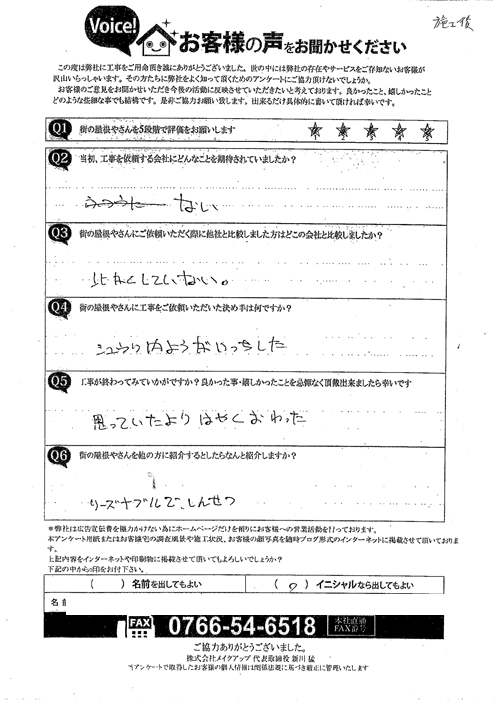 施工後
Voice!
お客様の声をお聞かせください
この度は弊社に工事をご用命頂き誠にありがとうございました。世の中には弊社の存在やサービスをご存知ないお客様が
沢山いらっしゃいます。その方たちに弊社をよく知って頂くためのアンケートにご協力頂けないでしょうか。
お客様のご意見をお聞かせいただき今後の活動に反映させていただきたいと考えております。良かったこと、嬉しかったこと
どのような些細な事でも結構です。是非ご協力お願い致します。出来るだけ具体的に書いて頂ければ幸いです。
Q1 街の屋根やさんを5段階で評価をお願いします
1 2 3 4 5
Q2 当初、工事を依頼する会社にどんなことを期待されていましたか?
ない
Q3 街の屋根やさんにご依頼いただく際に他社と比較しました方はどこの会社と比較しましたか?
比かくしていない。
Q4 街の屋根やさんに工事をご依頼いただいた決め手は何ですか?
シュウリ内ようがいっちした
Q5 工事が終わってみていかがですか?良かった事・嬉しかったことを忌憚なく頂戴出来ましたら幸いです
思っていたよりはやくおわった
Q6 街の屋根やさんを他の方に紹介するとしたらなんと紹介しますか?
リーズナブルで、しんせつ
*弊社は広告宣伝費を極力かけない為にホームページだけを頼りにお客様への営業活動を行っております。
本アンケート用紙またはお客様宅の調査風景や施工状況、お客様の顔写真を随時ブログ形式のインターネットに掲載させて頂いておりま
す。
上記内容をインターネットや印刷物に掲載させて頂いてもよろしいでしょうか?
下記の中から○印をお付下さい。
( ) 名前を出してもよい ( ○ ) イニシャルなら出してもよい
名前
FAX 0766-54-6518 本社直通 FAX番号
ご協力ありがとうございました。
株式会社メイクアップ 代表取締役 新川 猛
*アンケートで取得したお客様の個人情報は関係法規に基づき厳正に管理いたします